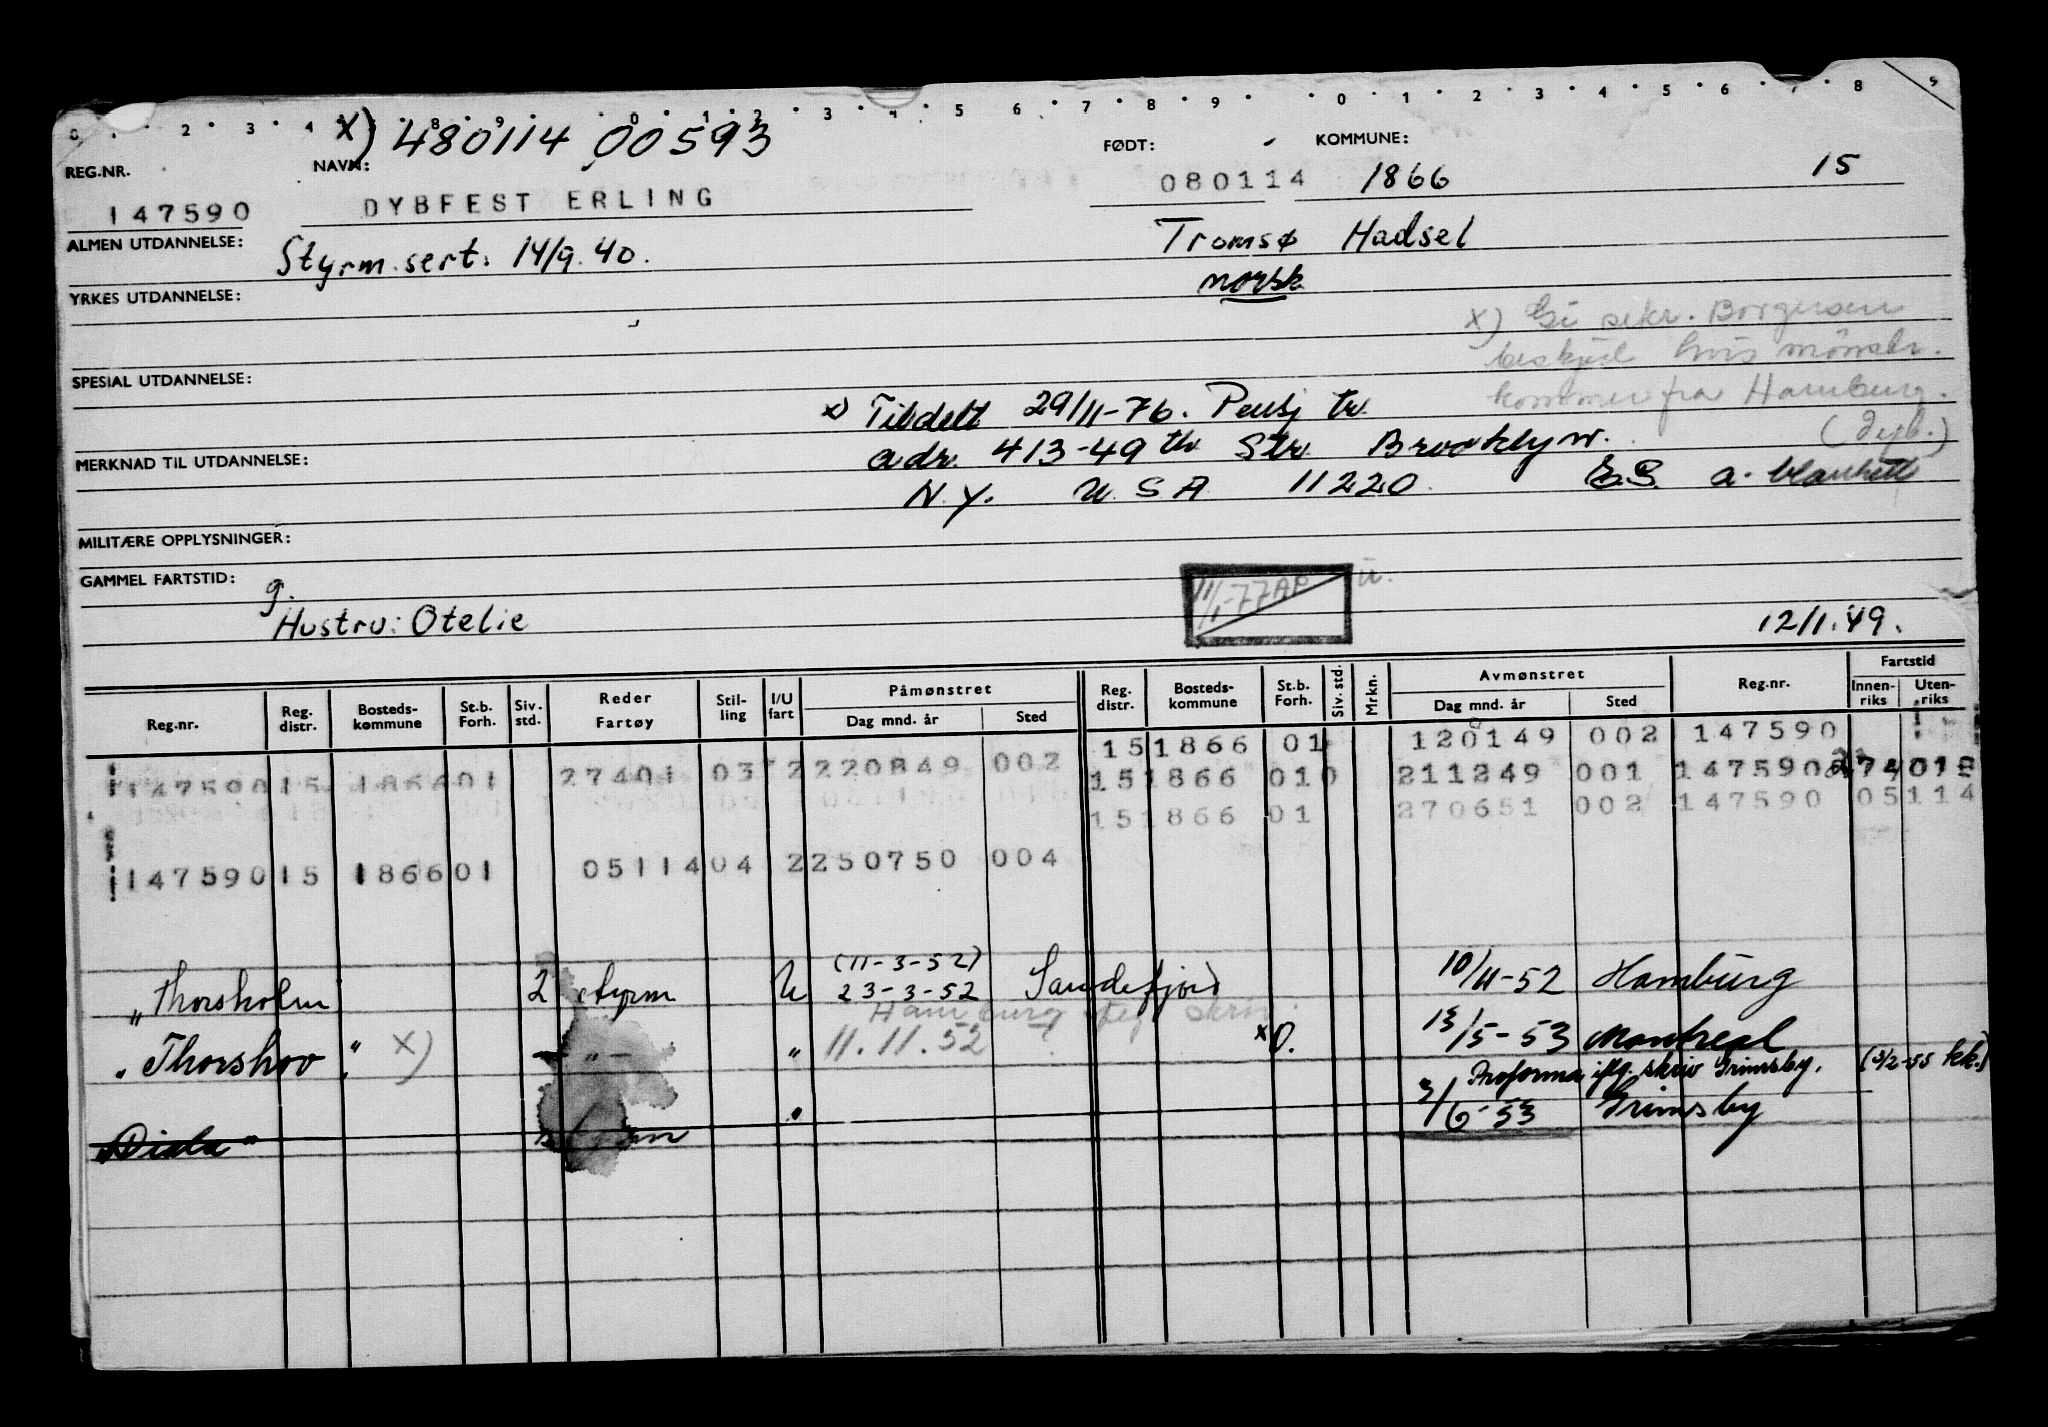 2 3 4 8 9 0 1 2 3 4 5 6 7 8 9 0 1 2 3 4 5 6 7 8 9
x) 480114 00593
REG.NR. NAVN: FØDT: KOMMUNE:
147590 DYBFEST ERLING 080114 1866 15
ALMEN UTDANNELSE: Styrm.sert. 14/9.40. Tromsø Hadsel
YRKES UTDANNELSE: norsk
x) Gi sekr. Borgersen
beskjed hvis mönstr.
SPESIAL UTDANNELSE: kommer fra Hamburg.
x) Tildelt 29/11-76. Pensj tr.
MERKNAD TIL UTDANNELSE: adr. 413-49th Str. Brooklyn.
N.Y. USA 11220 E.S. a. blankett
MILITÆRE OPPLYSNINGER:
GAMMEL FARTSTID: g. 11/1-77 AP
Hustru: Otelie 12/1.49.
Reg.nr. Reg. distr. Bosteds-kommune St.b. Forh. Siv. std. Reder Fartøy Stil-ling I/U fart Påmønstret Dag mnd. år Sted Reg. distr. Bosteds-kommune St.b. Forh. Siv. std. Mrkn. Avmønstret Dag mnd. år Sted Reg.nr. Fartstid Innen-riks Uten-riks
15 1866 01 120149 002 147590
147590 15 1866 01 27401 03 2 220849 002 15 1866 010 211249 001 147590
15 1866 01 270651 002 147590 05114
147590 15 1866 01 05114 04 2 250750 004
(11-3-52)
"Thorsholm 2 styrm U 23-3-52 Sandefjord 10/11-52 Hamburg
Hamburg iflg skriv
"Thorshov " x) - " - " 11.11.52 x) O. 13/5-53 Montreal
Proforma iflg. skriv Grimsby. (3/2-55 kk.)
"Diala" " 2/6-53 Grimsby